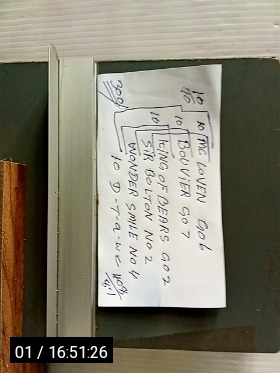 10 Mc LOVEN GO6
10 BOUVIER GO7
10 KING OF BEARS GO2
SIR BOLTON NO 2
WONDER SMILE NO 4
10 D-T-a-w c
300/
01 / 16:51:26